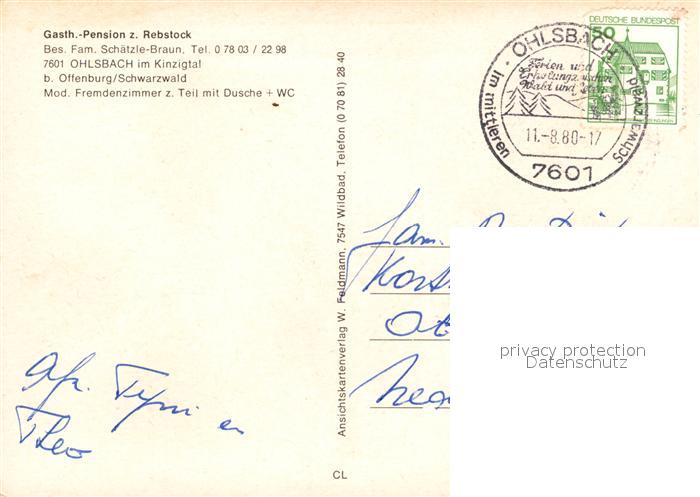 Gasth.-Pension z. Rebstock
Bes. Fam. Schätzle-Braun, Tel. 0 78 03 / 22 98
7601 OHLSBACH im Kinzigtal
b. Offenburg/Schwarzwald
Mod. Fremdenzimmer z. Teil mit Dusche + WC
Ansichtskartenverlag W. Feldmann, 7547 Wildbad, Telefon (0 70 81) 28 40
DEUTSCHE BUNDESPOST
50
OHLSBACH
Ferien und
Erholung zwischen
Wald und Reben
11.-8.80-17
7601
im mittleren Schwarzwald
Fam.
privacy protection
Datenschutz
Theo
CL